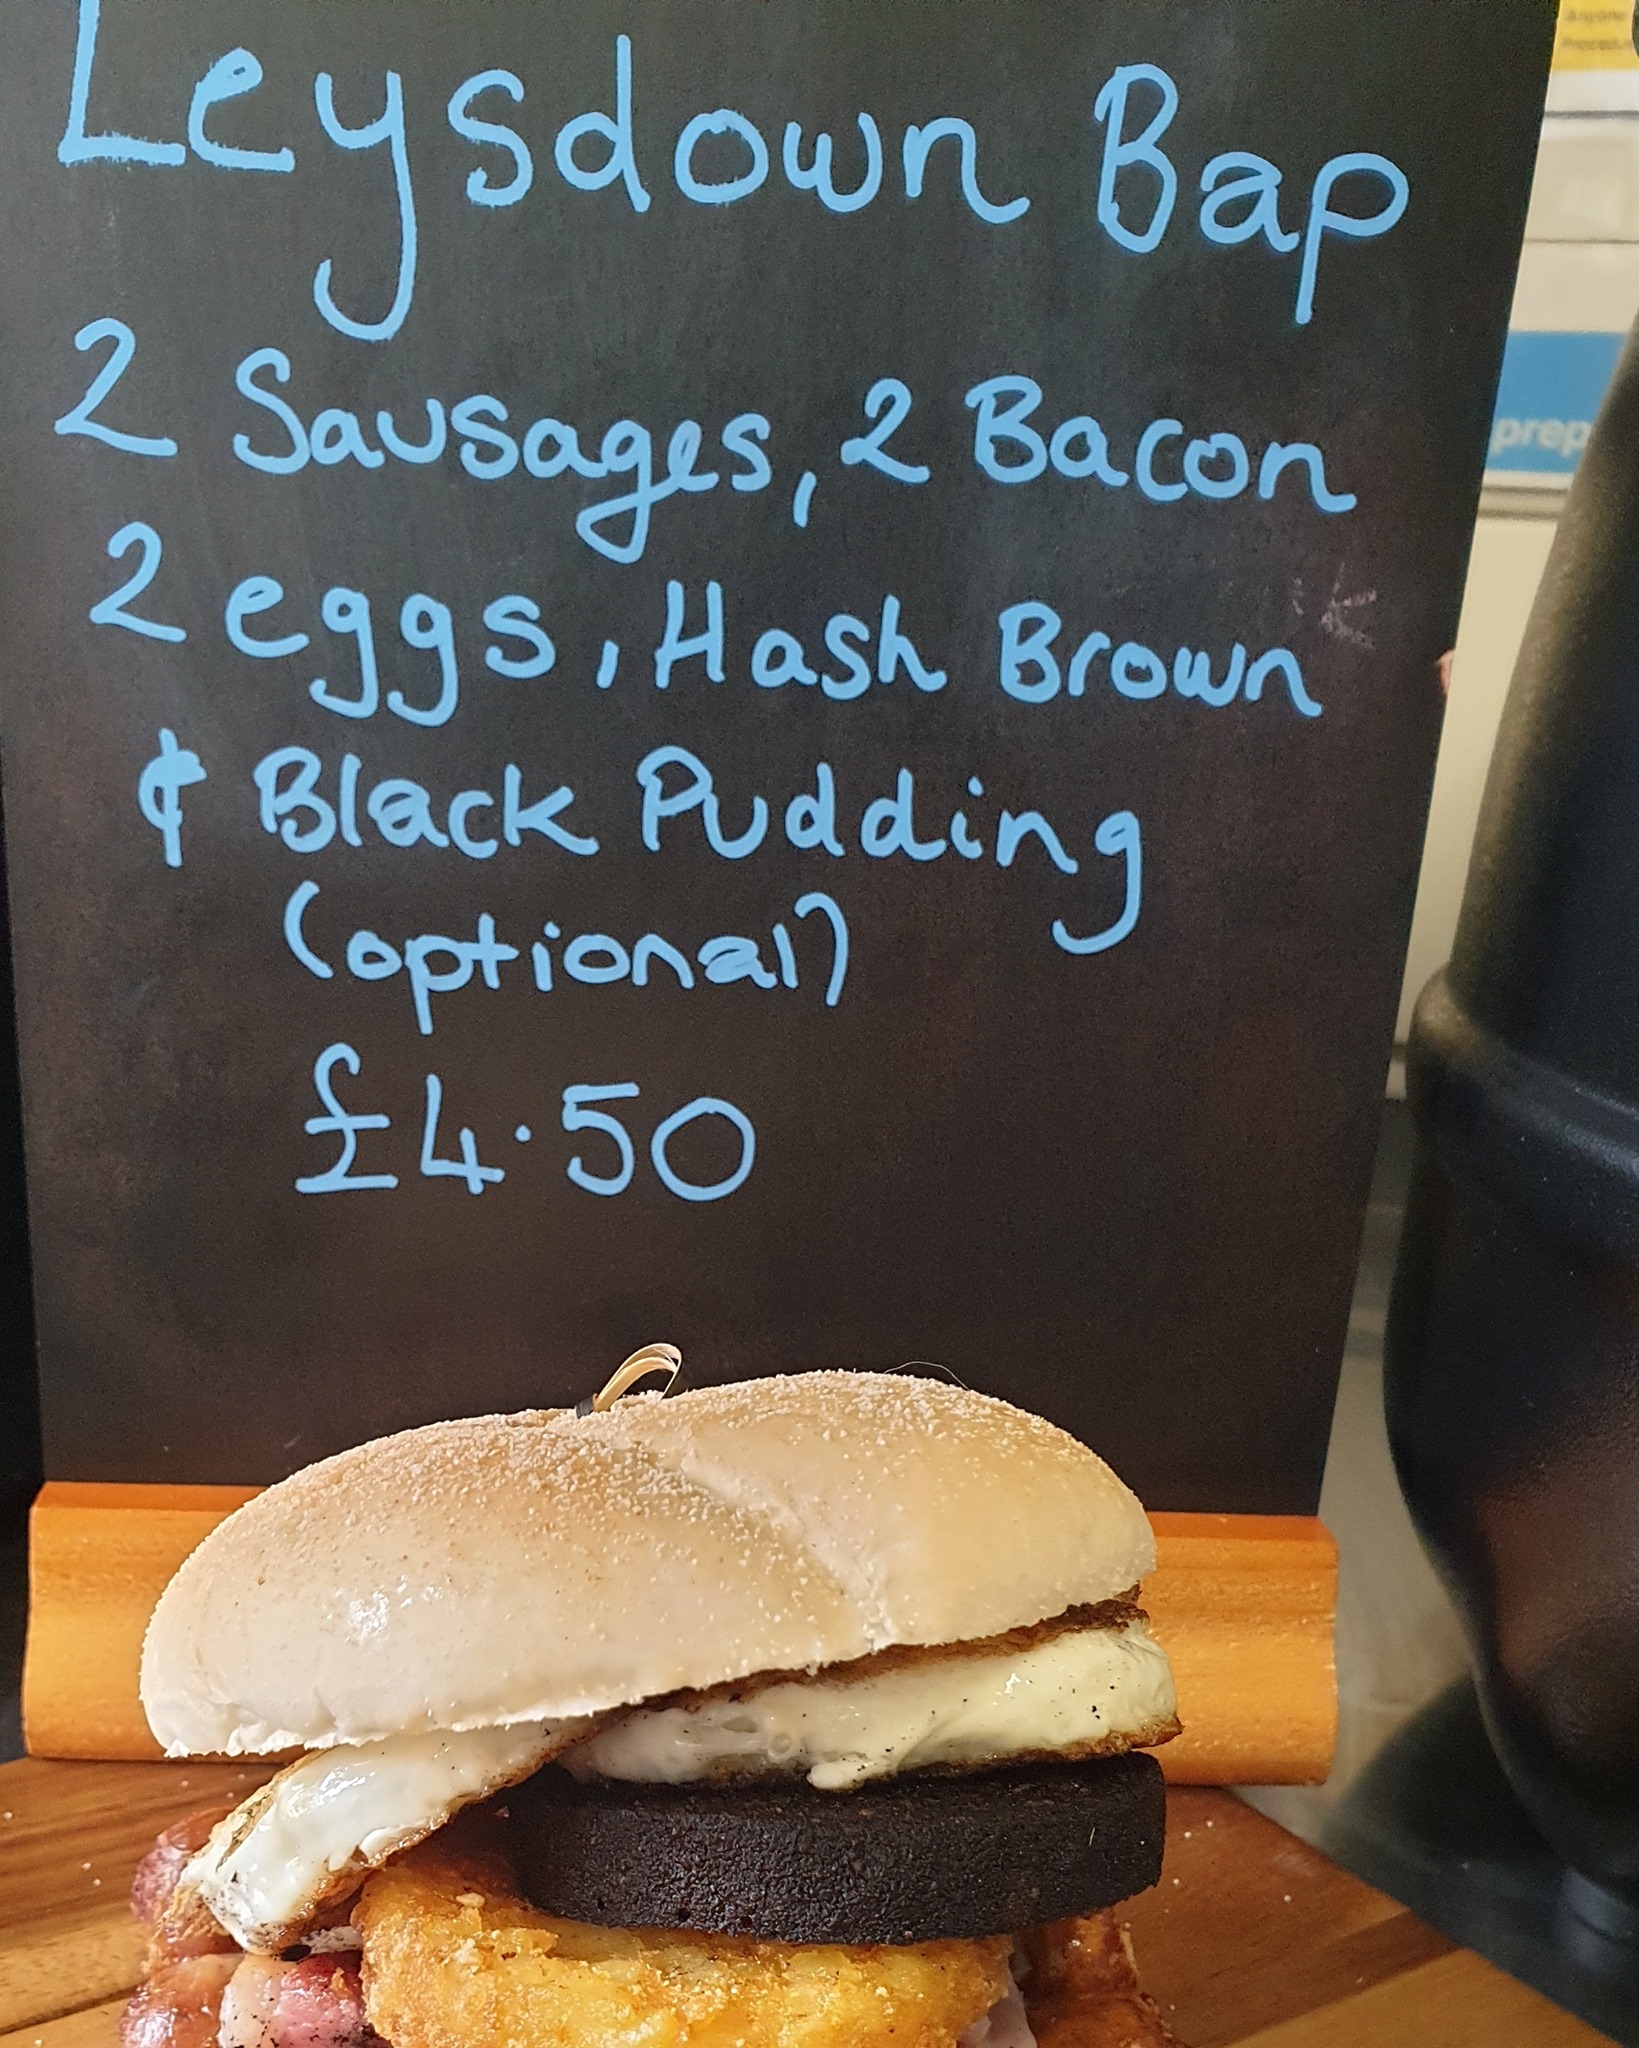 Leysdown Bap
2 Sausages, 2 Bacon
2 eggs, Hash Brown
& Black Pudding
(optional)
£4.50
prep